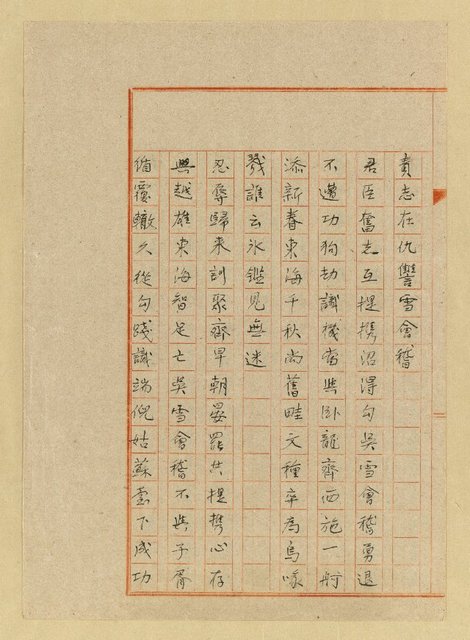 貴志在仇讐雪會稽
君臣奮志互提携沼得勾吳雪會稽勇退
不遭功狗劫識機當與卧龍齊西施一舸
添新眷東海千秋尚舊畦文種卒為烏喙
戮誰云氷鑑見無迷
忍辱歸來訓聚齊早朝晏罷共提携心存
興越雄東海智足亡吳雪會稽不與子胥
循覆轍久從勾踐識端倪姑蘇臺下成功